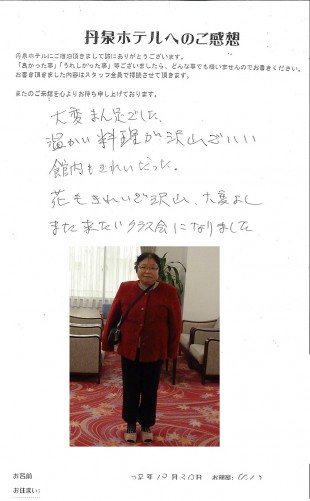 丹泉ホテルへのご感想
丹泉ホテルにご宿泊頂きまして誠にありがとうございます。
「良かった事」「うれしかった事」等ございましたら、どんな事でも構いませんのでお書きください。
お書き頂きました内容はスタッフ全員で拝読させて頂きます。
またのご来館を心よりお待ち申し上げております。
大変まん足でした
温かい料理が沢山でいい
館内もきれいだった。
花もきれいで沢山、大変よし
また来たいクラス会になりました
お名前
年10月 日 お部屋:
お住まい: